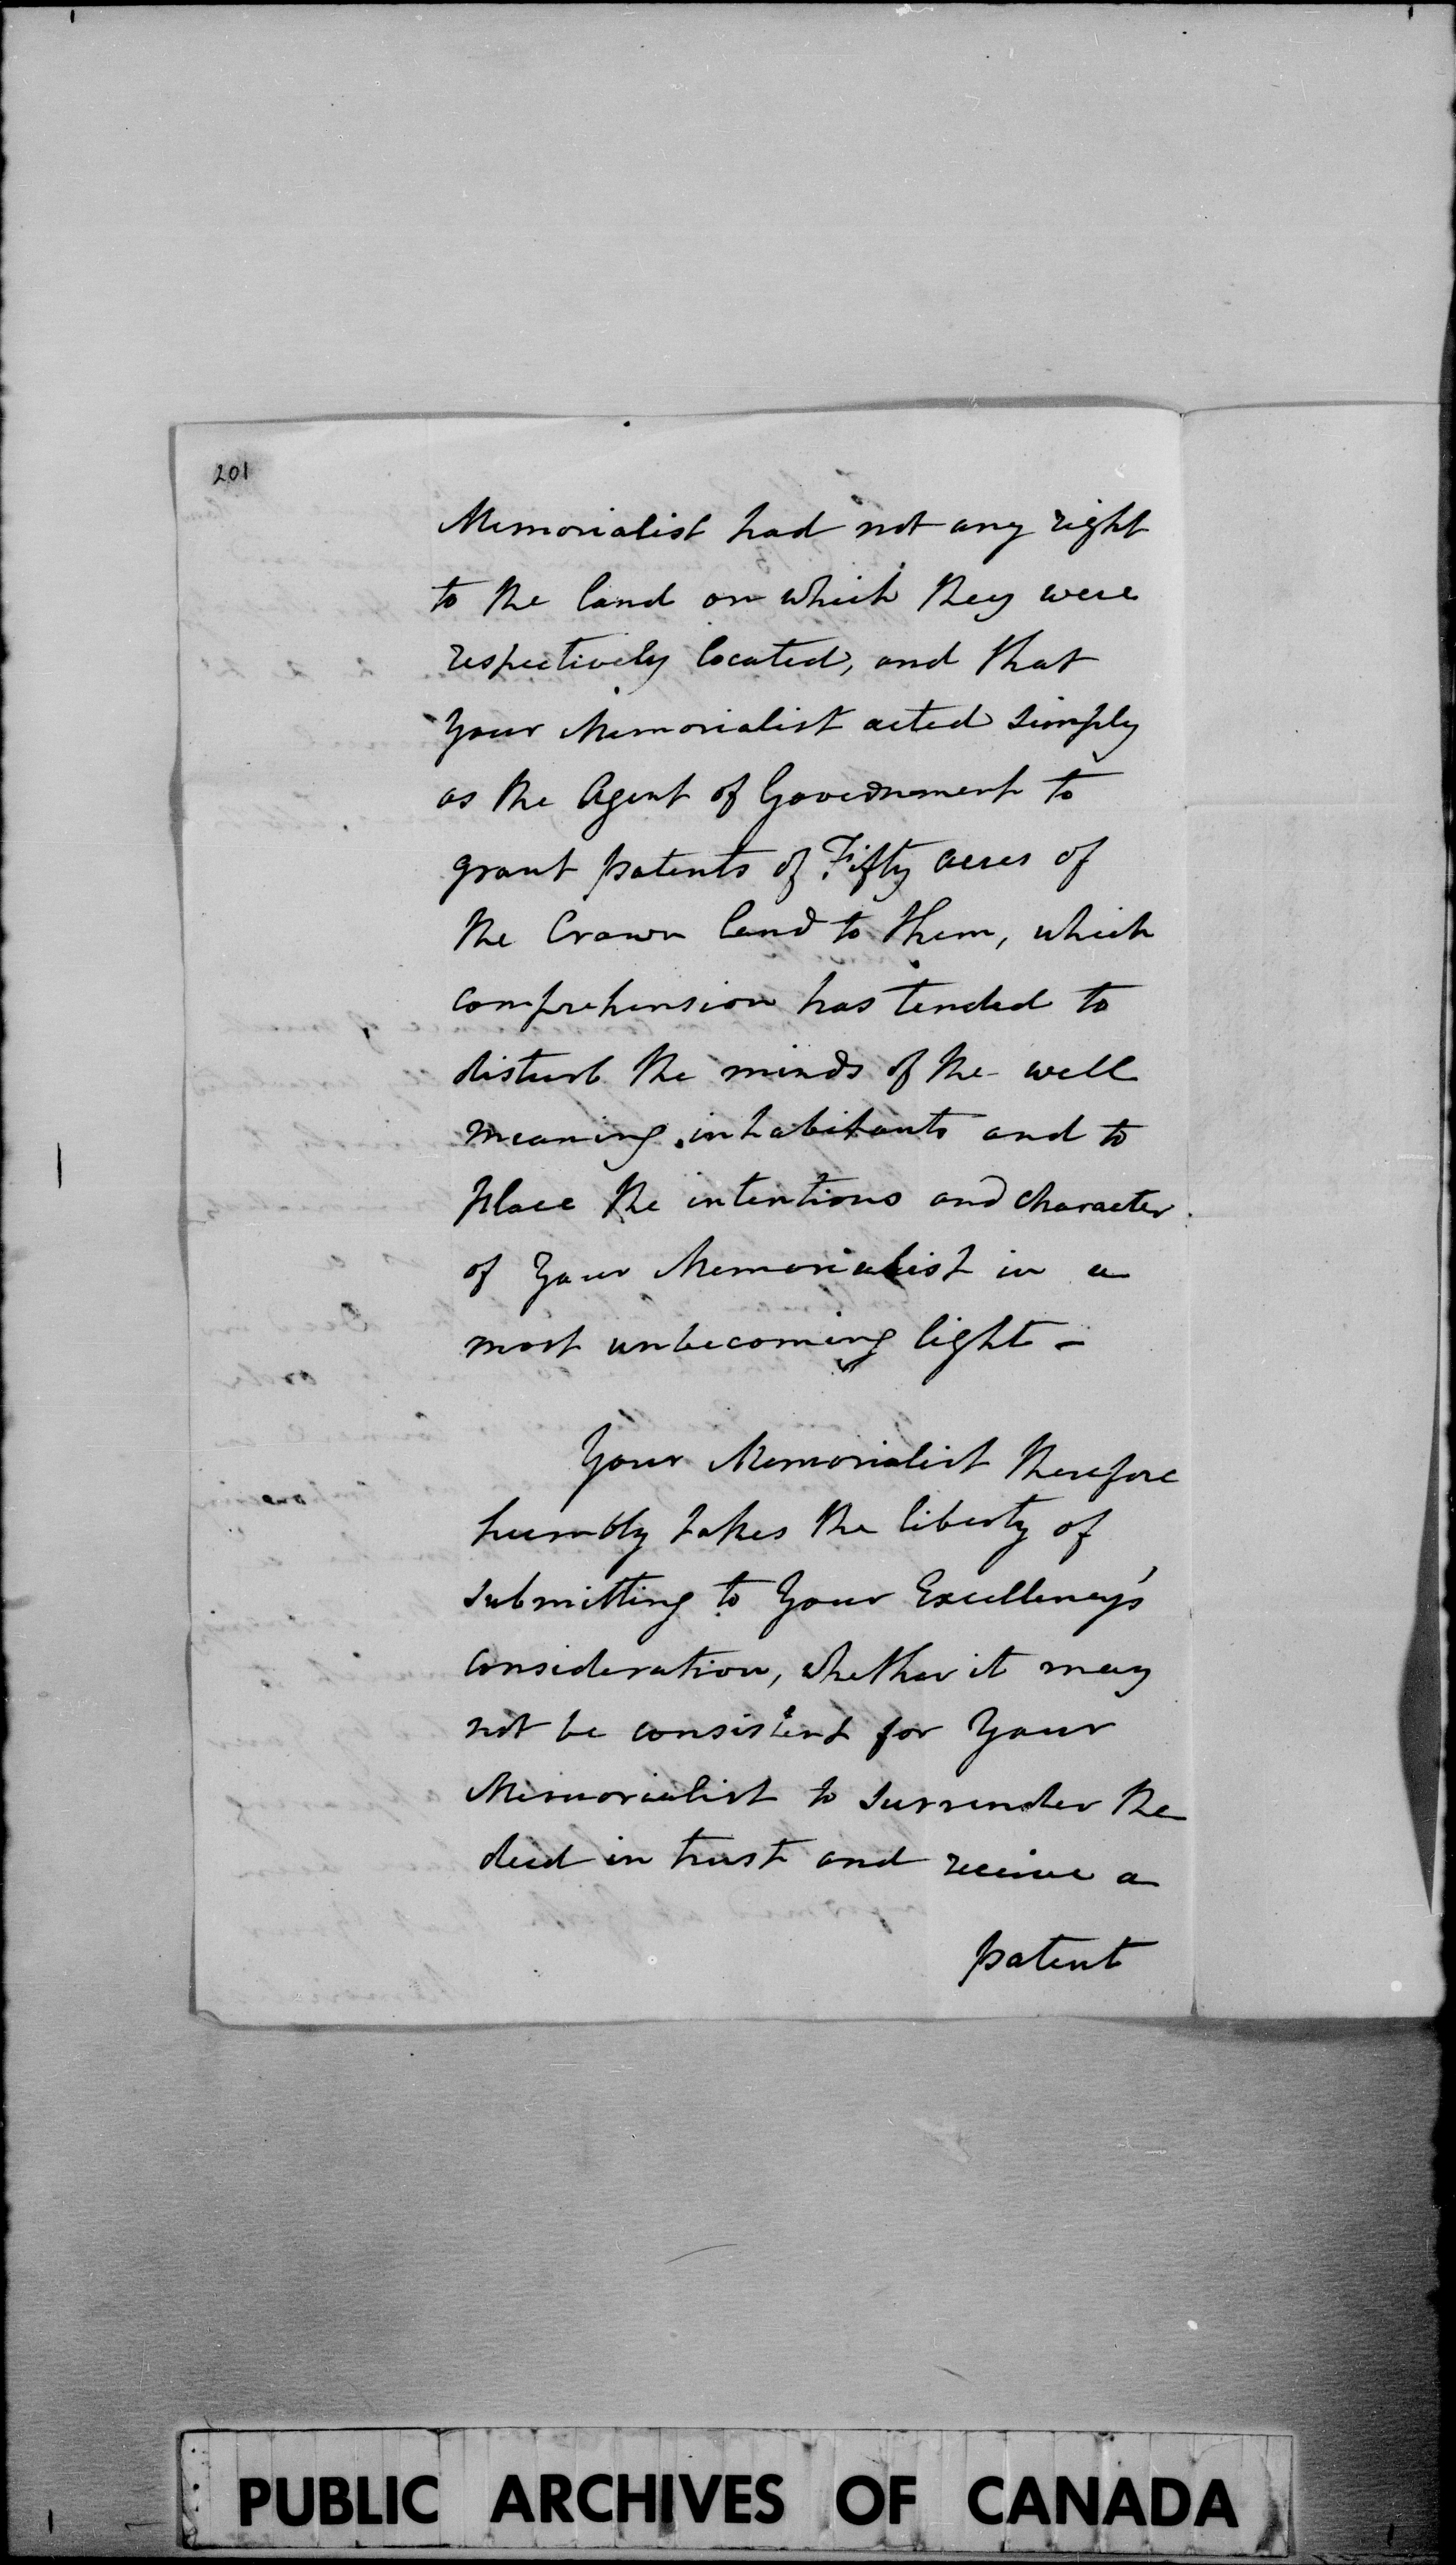 201
Memorialist had not any right
to the land on which they were
respectively located, and that
Your Memorialist acted simply
as the Agent of Government to
grant patents of Fifty acres of
the Crown land to them, which
comprehension has tended to
disturb the minds of the well
meaning inhabitants and to
place the intentions and character
of Your Memorialist in a
most unbecoming light –
Your Memorialist therefore
humbly takes the liberty of
submitting to Your Excellency's
consideration, whether it may
not be consistent for Your
Memorialist to surrender the
deed in trust and receive a
patent
PUBLIC ARCHIVES OF CANADA